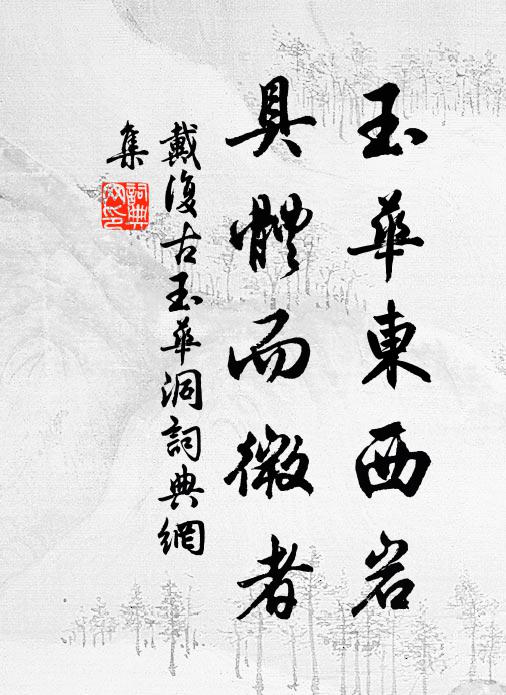 玉華東西岩
具體而微者
戴復古玉華洞詞典網
集
詞典
網印